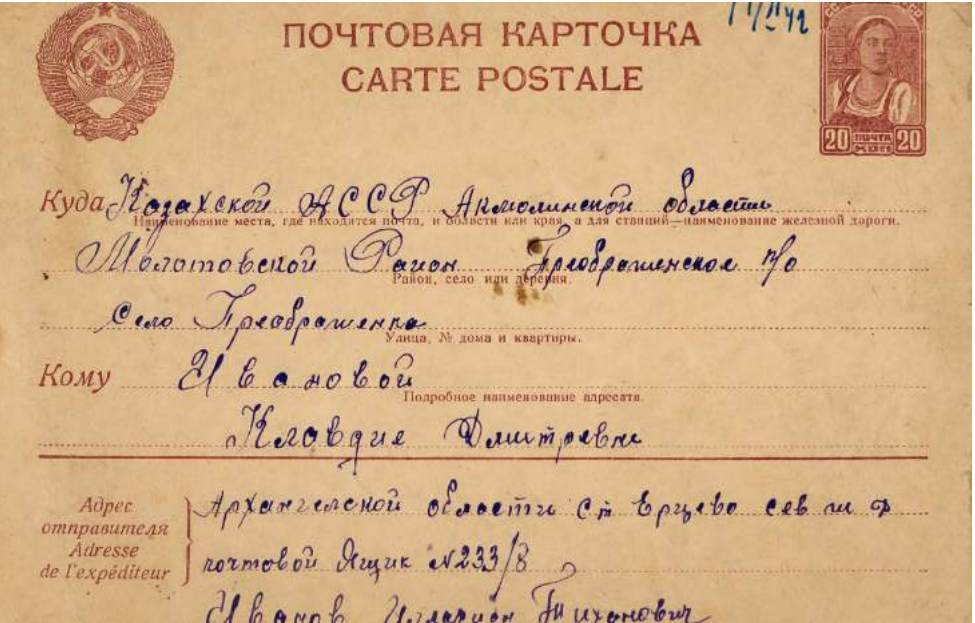 ПОЧТОВАЯ КАРТОЧКА
CARTE POSTALE
20 ПОЧТА 20
Куда Казахской АССР Акмолинской области
Наименование места, где находится почта, и области или края, а для станций—наименование железной дороги.
Молотовской Раион Преображенское п/о
Район, село или деревня.
Село Преображенка
Улица, № дома и квартиры.
Кому Ивановой
Подробное наименование адресата
Клавдие Дмитревне
Адрес отправителя
Adresse de l'expéditeur
Архангелской области ст Ерцево сев
почтовой Ящик №233/8
Иванов Илларион Тихонович